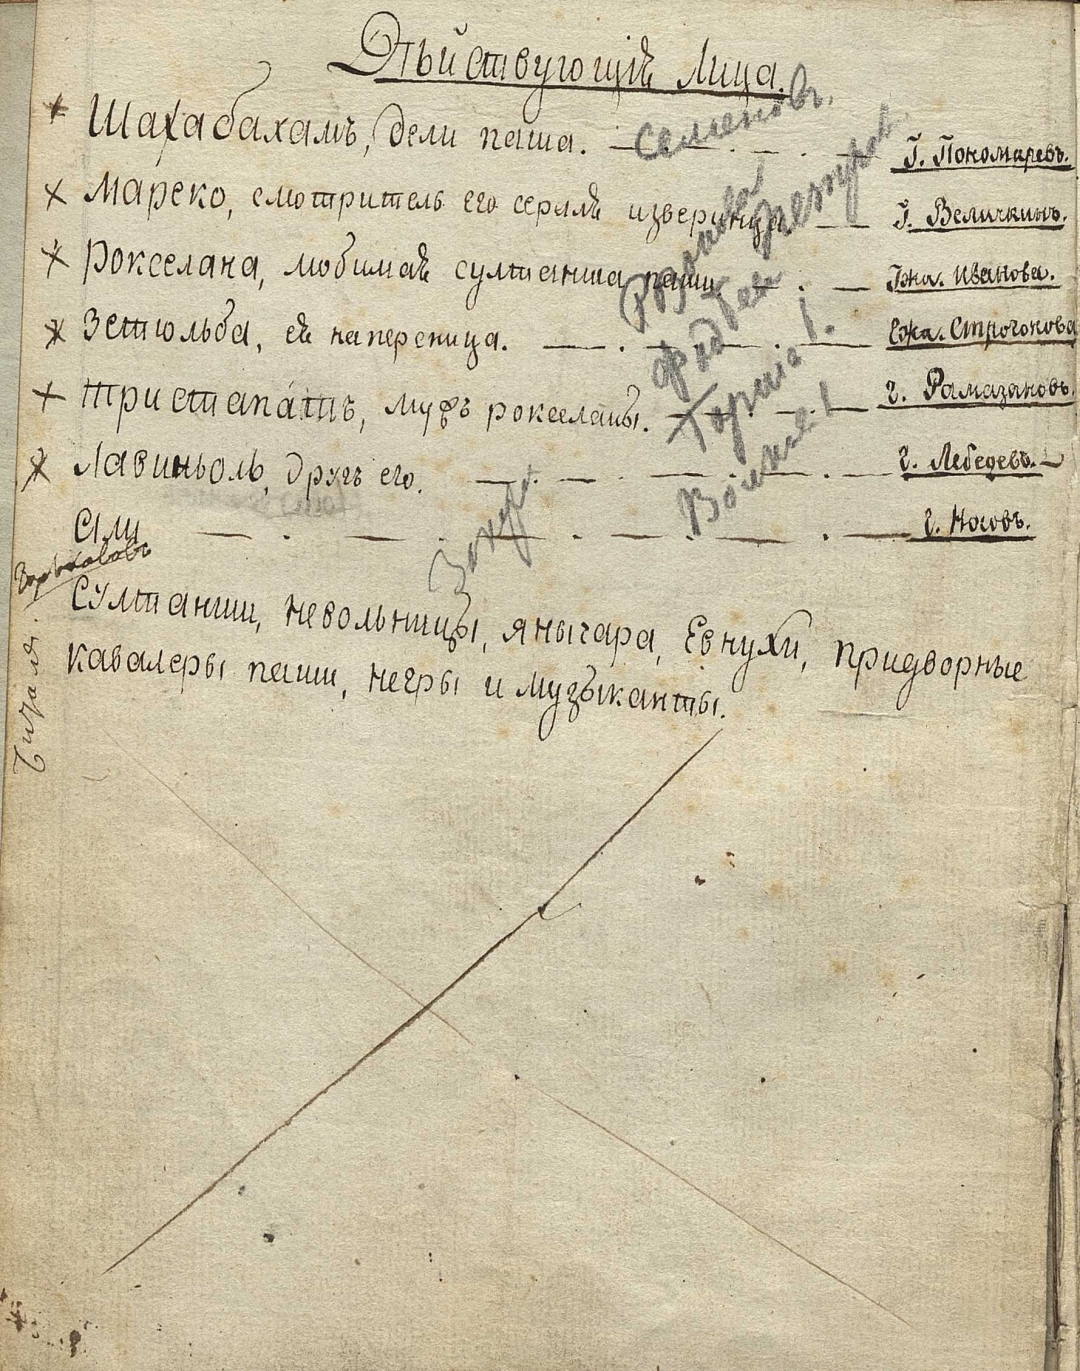 Дѣйствующіе Лица.
Шахабахамъ, дели паша. Семеновъ. Г. Пономаревъ.
Мареко, смотритель его сераля и зверинца Г. Величкинъ.
Рокселана, любимая султанша паши Гжа. Иванова.
Зетюльба, ея наперсница. Гжа. Строгонова
Тристапатъ, мужъ рокселаны. г. Рамазановъ.
Лавиньоль, другъ его. г. Лебедевъ.
Али г. Носовъ.
Султанши, невольницы, янычара, Евнухи, придворные
кавалеры паши, негры и музыканты.